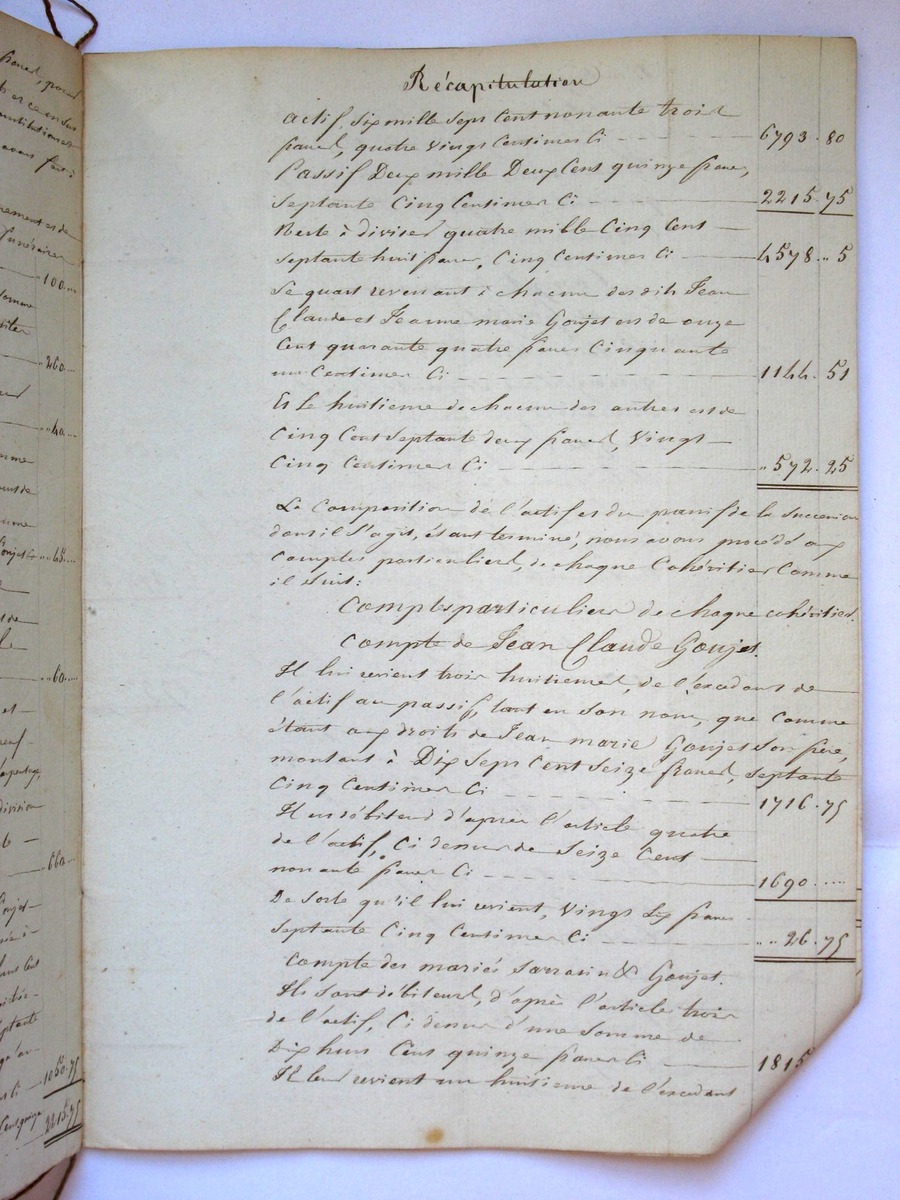 Récapitulation
actif Six mille Sept Cent nonante trois
francs, quatre Vingt Centimes Ci 6793. 80
Passif Deux mille Deux Cent quinze francs,
Septante Cinq Centimes Ci 2215. 75
Reste à diviser quatre mille Cinq Cent
Septante huit francs, Cinq Centimes Ci 4578. " 5
Le quart revenant à chacun desdits Jean
Claude et Jeanne marie Goujet est de onze
Cent quarante quatre francs Cinquante
un Centimes Ci 1144. 51
Et le huitieme de chacun des autres est de
Cinq Cent Septante deux francs, Vingt
Cinq Centimes Ci " 572. 25
La Composition de l'actif et du passif de la Succession
dont il S'agit, étant terminé, nous avons procédé aux
Comptes particuliers, de chaque Cohéritier Comme
il Suit:
Comptes particuliers de chaque cohéritier.
Compte de Jean Claude Goujet.
Il lui revient trois huitiemes, de l'excédant de
l'actif au passif, tant en Son nom, que Comme
étant aux droits de Jean marie Goujet Son frère,
montant à Dix Sept Cent Seize francs, Septante
Cinq Centimes Ci 1716. 75
Il est débiteur d'après l'article quatre
de l'actif, Ci dessus de Seize Cent
nonante francs Ci 1690 .....
De Sorte qu'il lui revient, Vingt Six francs
Septante Cinq Centimes Ci " " 26. 75
Compte des mariés Sarrasin & Goujet.
Ils Sont débiteurs, d'après l'article trois
de l'actif, Ci dessus d'une Somme de
Dix huit Cent quinze francs Ci 1815
Il leur revient un huitieme de l'excédant
100
260
40
45
60
660
1050. 75
2215. 75